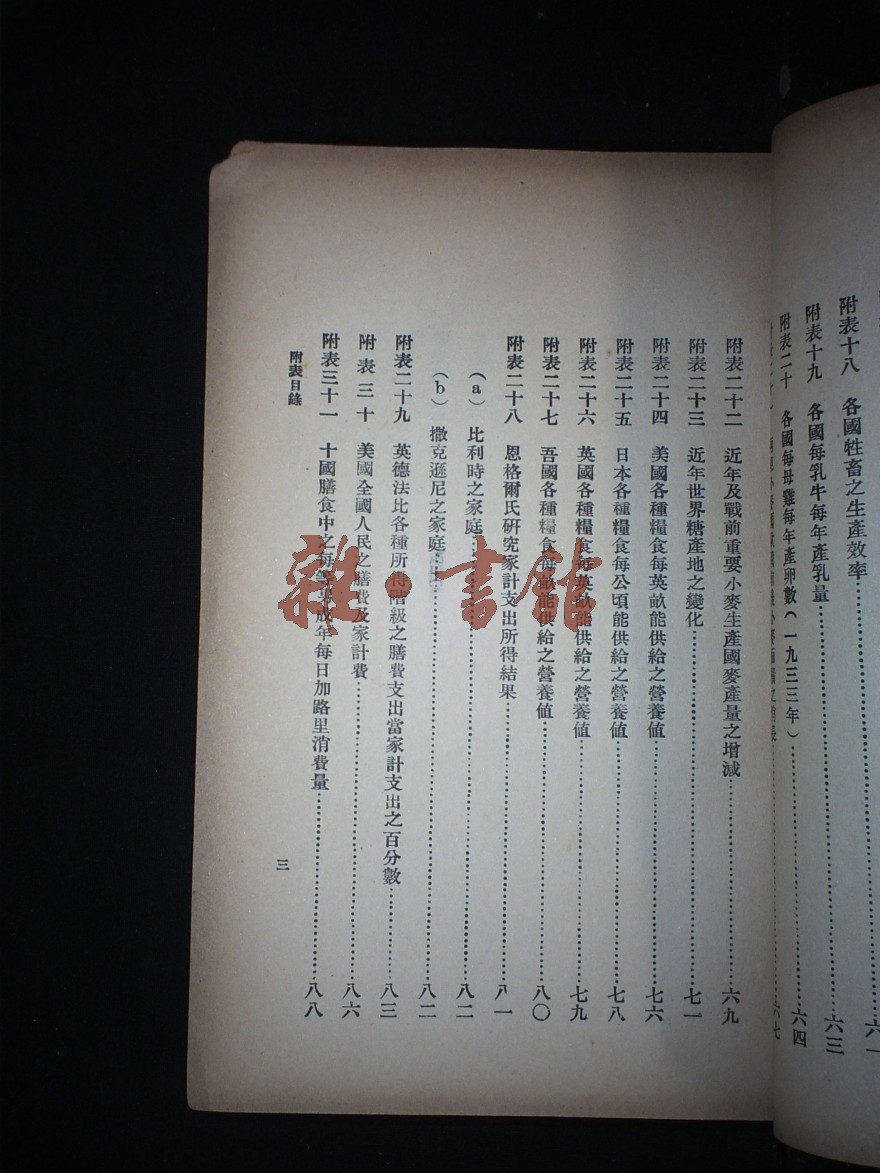 附表十八　各國牲畜之生產效率……六一
附表十九　各國每乳牛每年產乳量……六三
附表二十　各國每母雞每年產卵數（一九三三年）……六四
六七
附表二十二　近年及戰前重要小麥生產國麥產量之增減……六九
附表二十三　近年世界糖產地之變化……七一
附表二十四　美國各種糧食每英畝能供給之營養値……七六
附表二十五　日本各種糧食每公頃能供給之營養値……七八
附表二十六　英國各種糧食每英畝能供給之營養値……七九
附表二十七　吾國各種糧食每畝能供給之營養値……八〇
附表二十八　恩格爾氏研究家計支出所得結果……八一
（a）比利時之家庭……八二
（b）撒克遜尼之家庭……八二
附表二十九　英德法比各種所得階級之膳費支出當家計支出之百分數……八三
附表三十　美國全國人民之膳費及家計費……八六
附表三十一　十國膳食中之每等男成年每日加路里消費量……八八
附表目錄
三
雜·書館